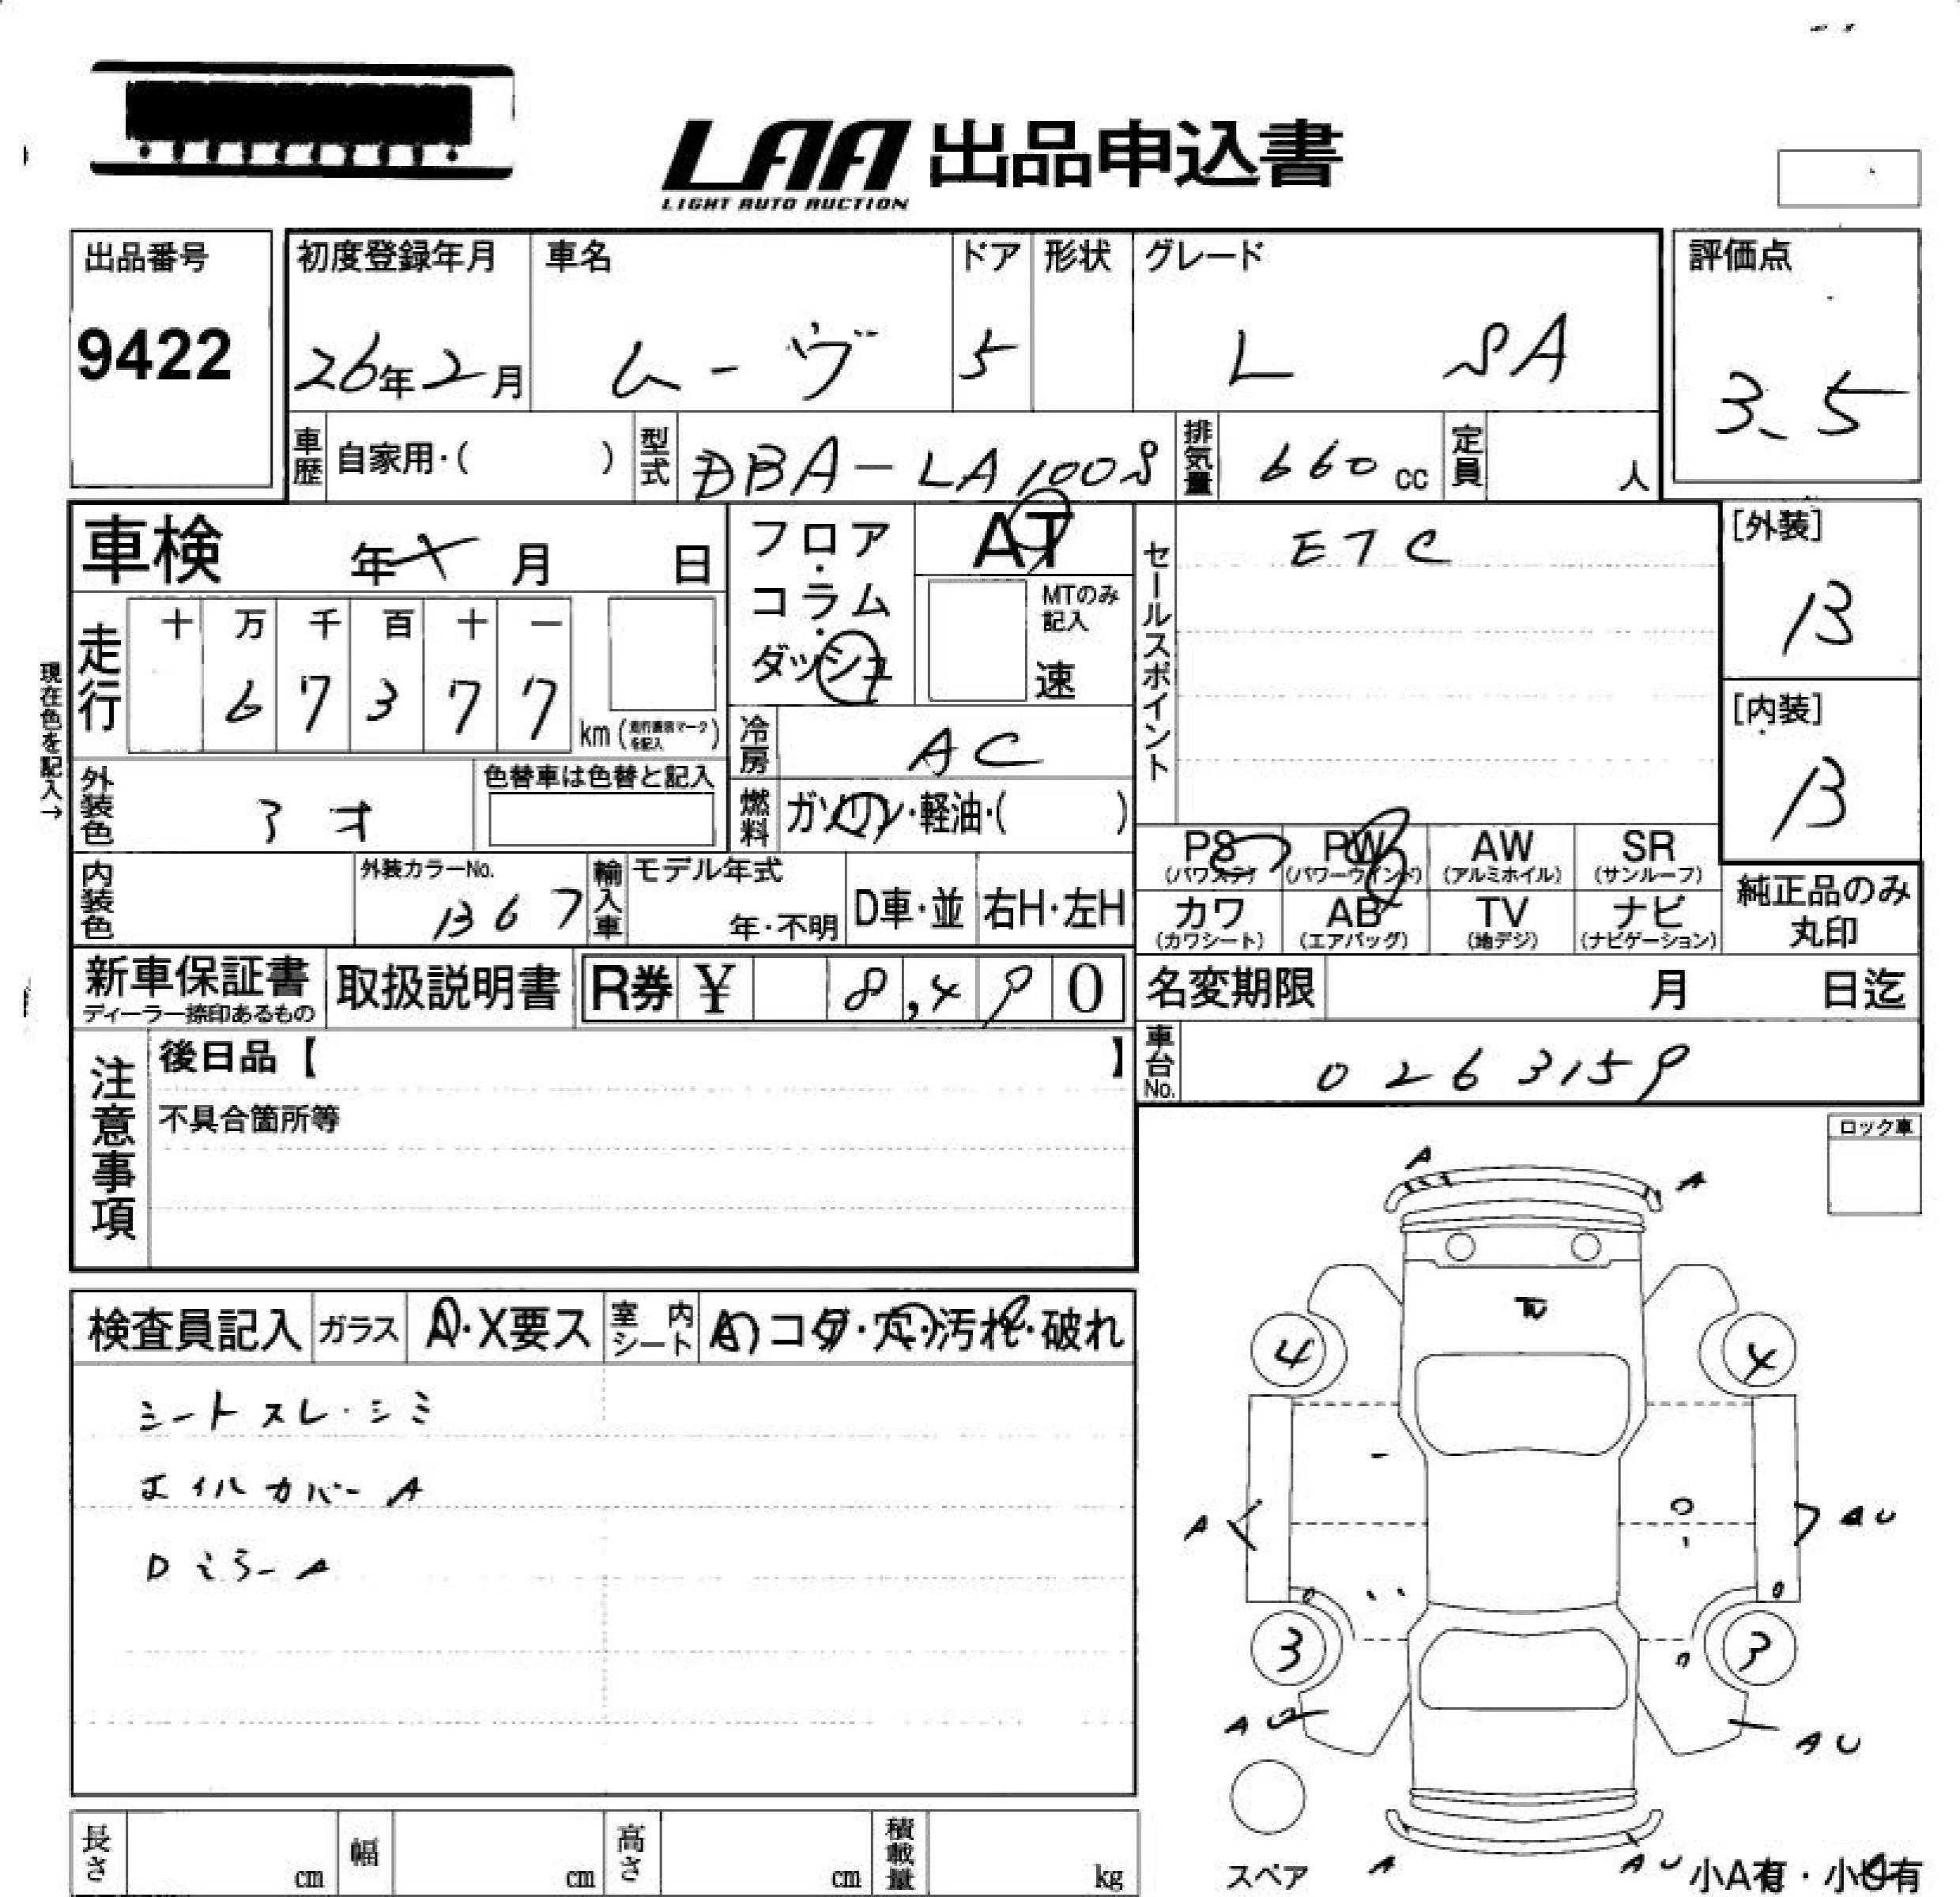 LAA 出品申込書
LIGHT AUTO AUCTION
出品番号
9422
初度登録年月 車名 ドア 形状 グレード
26年2月 ムーヴ 5 L SA
評価点
3.5
車歴 自家用・( ) 型式 DBA-LA100S 排気量 660cc 定員 人
車検 年 × 月 日
フロア・コラム・ダッシュ
AT
MTのみ記入
速
セールスポイント
ETC
[外装]
B
[内装]
B
現在色を記入→
走行 十 万 千 百 十 一
6 7 3 7 7 km (走行距離マークを記入)
冷房 AC
外装色 アオ
色替車は色替と記入
燃料 ガソリン・軽油・( )
PS (パワステ) PW (パワーウインド) AW (アルミホイル) SR (サンルーフ)
カワ (カワシート) AB (エアバッグ) TV (地デジ) ナビ (ナビゲーション)
純正品のみ丸印
内装色
外装カラーNo.
B67
輸入車 モデル年式
年・不明 D車・並 右H・左H
新車保証書
ディーラー捺印あるもの
取扱説明書 R券 ¥ 8,490
名変期限 月 日迄
車台No. 0263159
注意事項
後日品【 】
不具合箇所等
ロック車
検査員記入 ガラス A・X要ス 室内シート A・コゲ・穴・汚れ・破れ
シートスレ・シミ
ホイルカバーA
DミラーA
A A
4 4
A AU
3 3
AU AU
A AU
スペア
小A有・小U有
長さ cm 幅 cm 高さ cm 積載量 kg